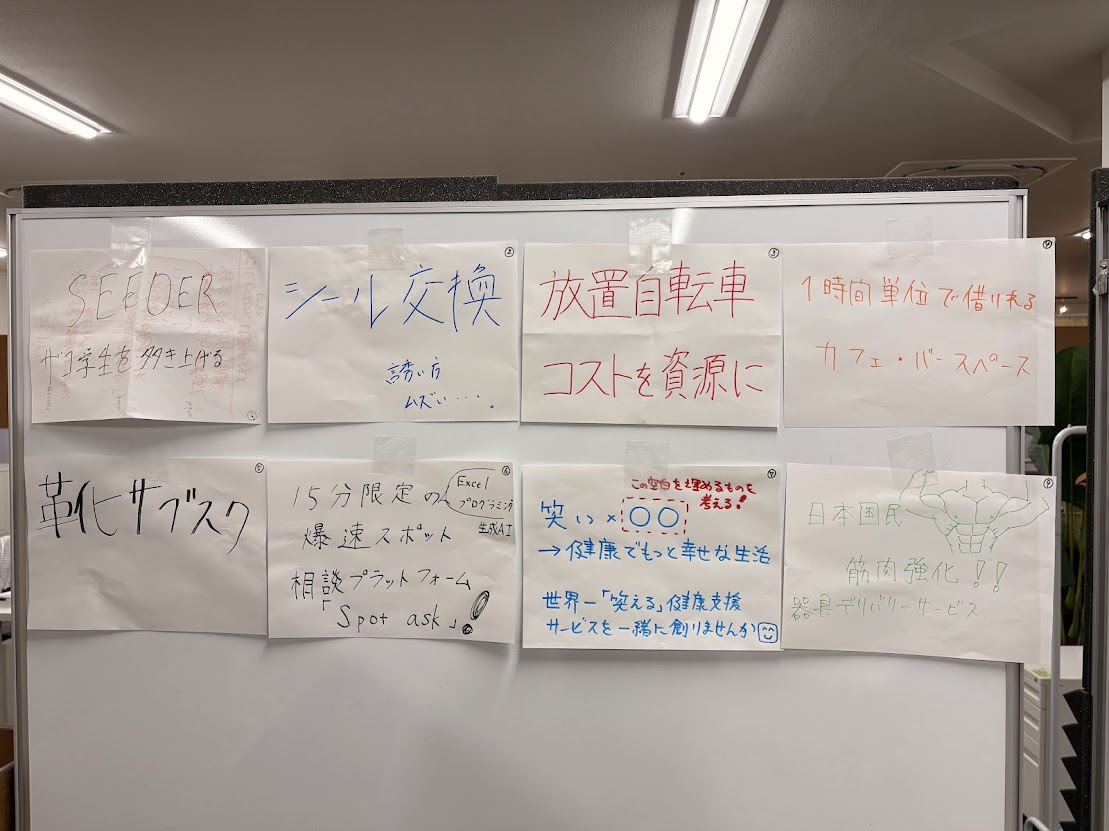 SEEDER
ザコ学生を叩き上げる
①
②
シール交換
誘い方
ムズい・・・。
③
放置自転車
コストを資源に
④
1時間単位で借りれる
カフェ・バースペース
⑤
革化サブスク
⑥
15分限定の
Excel
プログラミング
生成AI
爆速スポット
相談プラットフォーム
「Spot ask」!
⑦
この空白を埋めるものを
考える!
笑い×〇〇
→健康でもっと幸せな生活
世界一「笑える」健康支援
サービスを一緒に創りませんか
⑧
日本国民
筋肉強化!!
器具デリバリーサービス